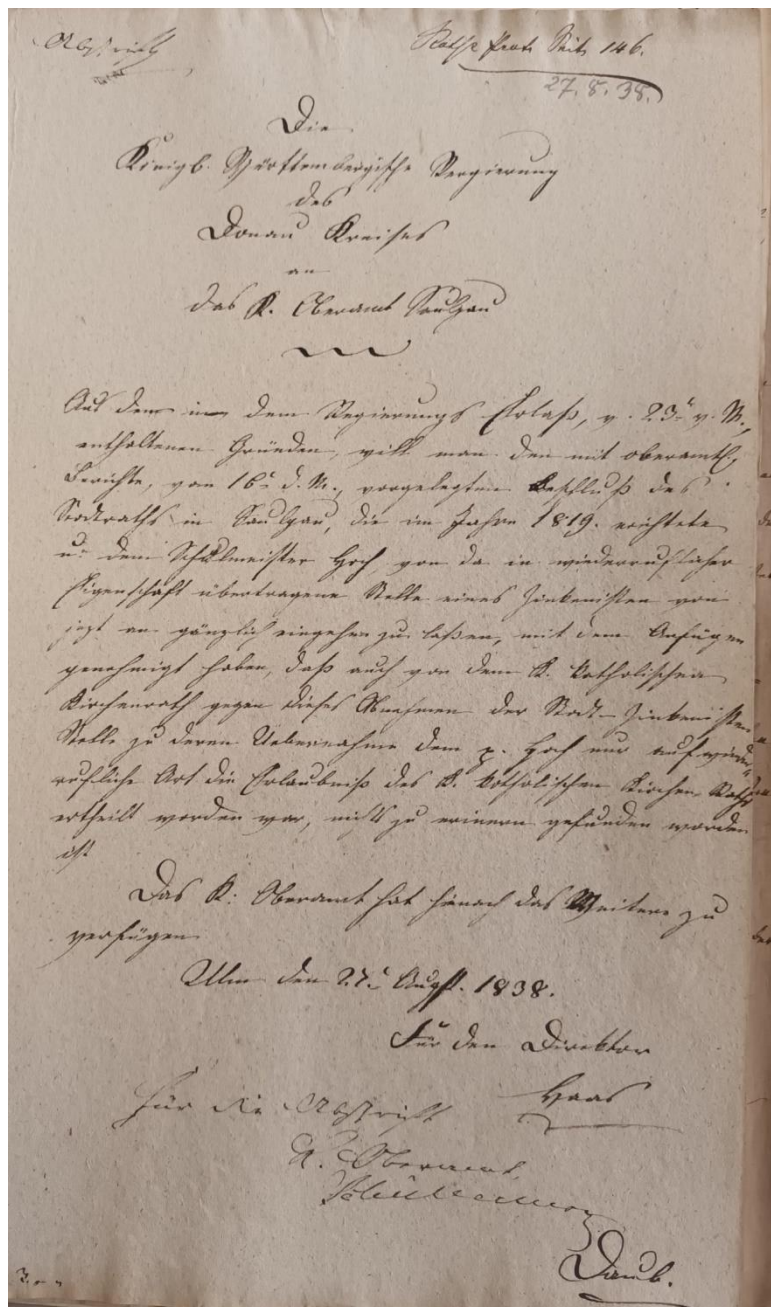 Abschrift
Raths Prot. Seite 146.
27. 8. 38.
Die
Königl. Württembergische Regierung
des
Donau Kreises
an
das K. Oberamt Saulgau
Aus den in dem Regierungs Erlaß, v. 23t v. M.,
enthaltenen Gründen, will man den mit oberamtl.
Berichte, vom 16t d. M., vorgelegten Beschluß des
Stadtraths in Saulgau, die im Jahre 1819. errichtete
u. dem Schulmeister Hoch von da in wiederruflicher
Eigenschaft übertragene Stelle eines Zinkenisten von
jezt an gänzlich eingehen zu laßen, mit dem Anfügen
genehmigt haben, daß auch von dem K. katholischen
Kirchenrath gegen dieses Abnehmen der Stadt-Zinkenisten
Stelle zu deren Uebernahme dem p. Hoch nur auf wieder-
rufliche Art die Erlaubniß des K. katholischen Kirchen Raths
ertheilt worden war, nichts zu erinern gefunden worden
ist
Das K. Oberamt hat hienach das Weitere zu
verfügen
Ulm den 27t Augst. 1838.
Für den Direktor
Haas
Für die Abschrift
K. Oberamt,
Daub.